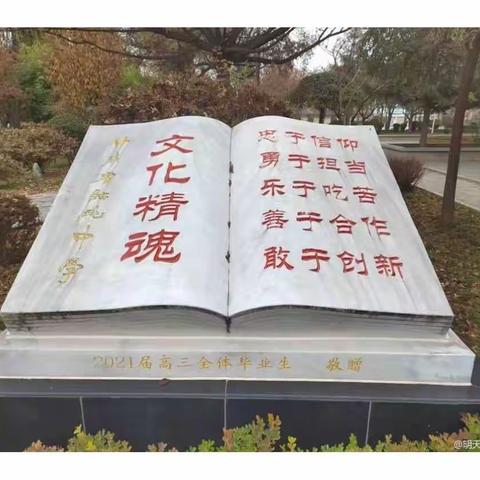 文化精魂
中学
忠于信仰
勇于担当
乐于吃苦
善于合作
敢于创新
2021届高三全体毕业生 敬赠
@明天